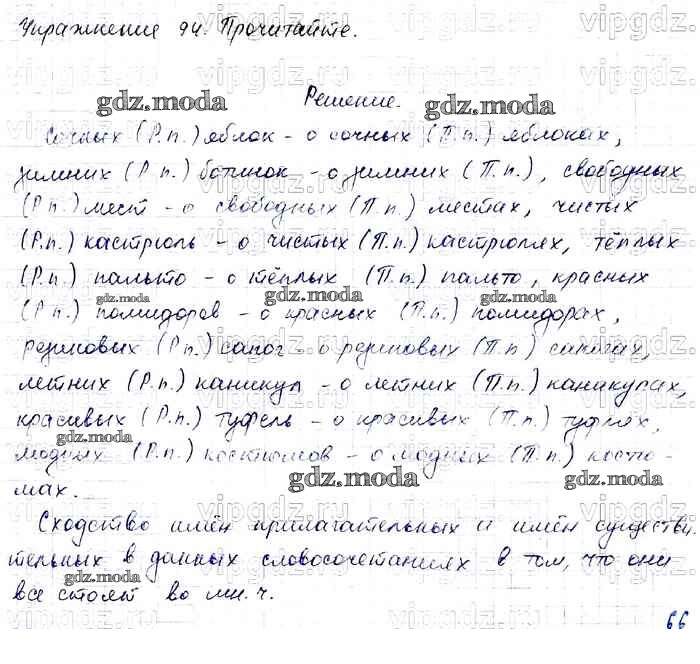 Упражнение 94. Прочитайте.
Решение.
Сочных (Р.п.) яблок - о сочных (П.п.) яблоках,
зимних (Р.п.) ботинок - о зимних (П.п.), свободных
(Р.п.) мест - о свободных (П.п.) местах, чистых
(Р.п.) кастрюль - о чистых (П.п.) кастрюлях, тёплых
(Р.п.) пальто - о тёплых (П.п.) пальто, красных
(Р.п.) помидоров - о красных (П.п.) помидорах,
резиновых (Р.п.) сапог - о резиновых (П.п) сапогах,
летних (Р.п.) каникул - о летних (П.п.) каникулах,
красивых (Р.п.) туфель - о красивых (П.п.) туфлях,
модных (Р.п.) костюмов - о модных (П.п.) костю-
мах.
Сходство имён прилагательных и имён существи-
тельных в данных словосочетаниях в том, что они
все стоят во мн.ч.
66